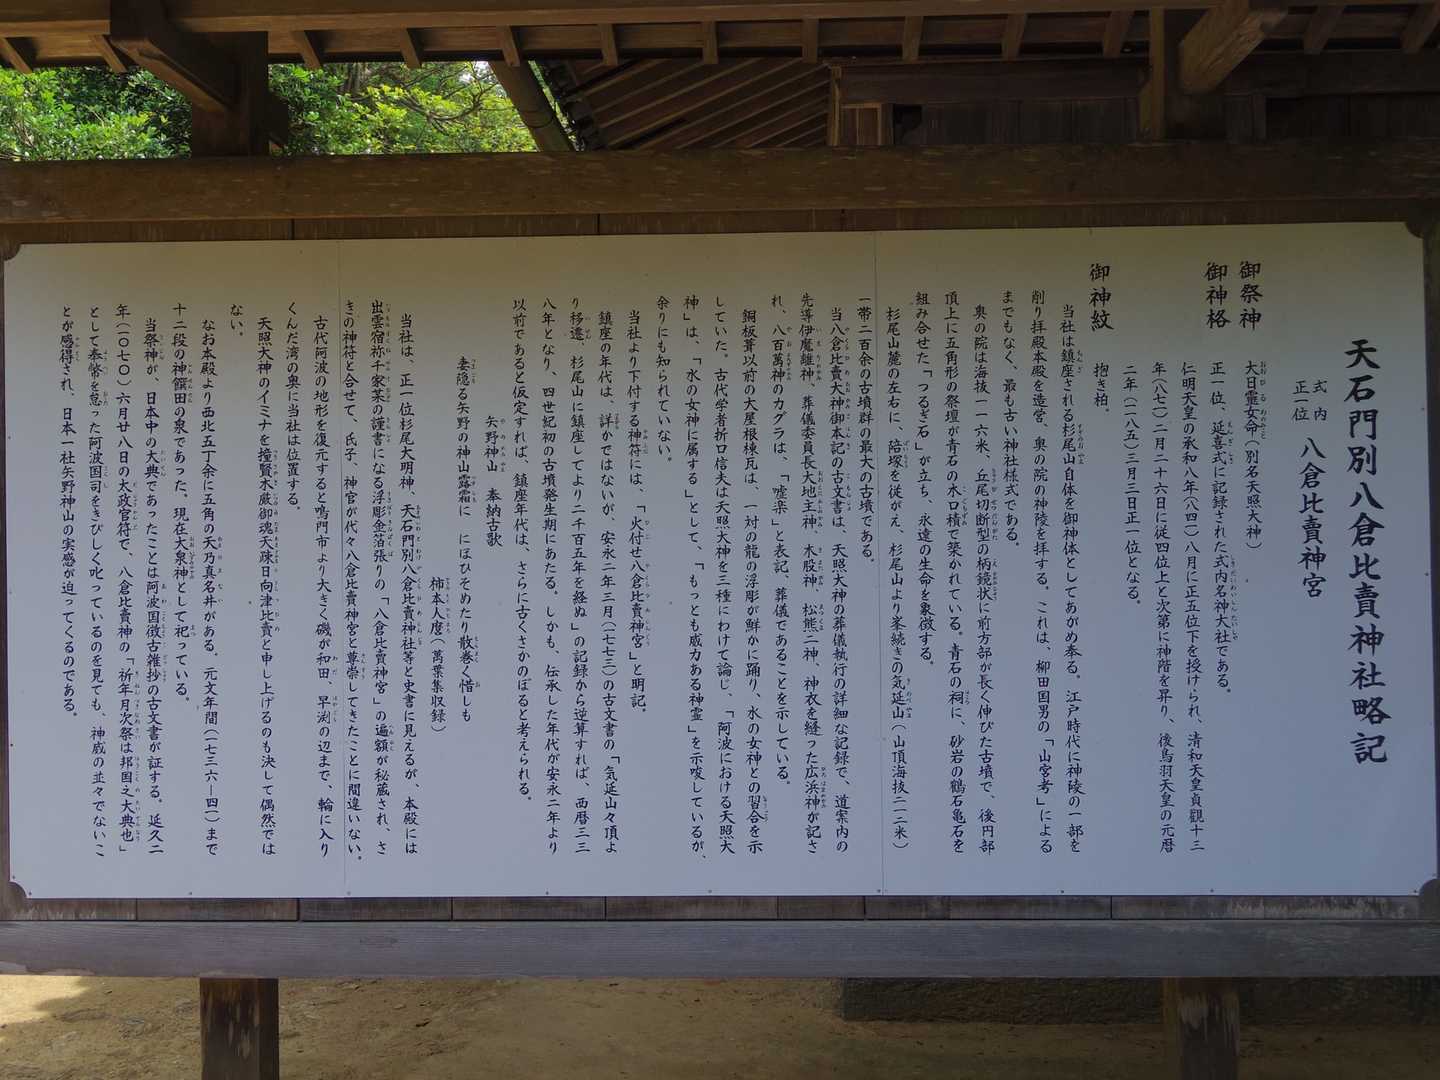 天石門別八倉比賣神社略記
式内
正一位
八倉比賣神宮
御祭神
大日靈女命(別名天照大神)
御神格
正一位、延喜式に記録された式内名神大社である。
仁明天皇の承和八年(八四一)八月に正五位下を授けられ、清和天皇貞観十三
年(八七一)二月二十六日に従四位上と次第に神階を昇り、後鳥羽天皇の元暦
二年(一一八五)三月三日正一位となる。
御神紋
抱き柏。
当社は鎮座される杉尾山自体を御神体としてあがめ奉る。江戸時代に神陵の一部を
削り拝殿本殿を造営、奥の院の神陵を拝する。これは、柳田国男の「山宮考」による
までもなく、最も古い神社様式である。
奥の院は海抜一一六米、丘尾切断型の柄鏡状に前方部が長く伸びた古墳で、後円部
頂上に五角形の祭壇が青石の木口積で築かれている。青石の祠に、砂岩の鶴石亀石を
組み合せた「つるぎ石」が立ち、永遠の生命を象徴する。
杉尾山麓の左右に、陪塚を従がえ、杉尾山より峯続きの気延山(山頂海抜二一二米)
一帯二百余の古墳群の最大の古墳である。
当八倉比賣大神御本記の古文書は、天照大神の葬儀執行の詳細な記録で、道案内の
先導伊魔離神、葬儀委員長大地主神、木股神、松熊二神、神衣を縫った広浜神が記さ
れ、八百萬神のカグラは、「嘘楽」と表記、葬儀であることを示している。
銅板葺以前の大屋根棟瓦は、一対の龍の浮彫が鮮かに踊り、水の女神との習合を示
していた。古代学者折口信夫は天照大神を三種にわけて論じ、「阿波における天照大
神」は、「水の女神に属する」として、「もっとも威力ある神霊」を示唆しているが、
余りにも知られていない。
当社より下付する神符には、「火付せ八倉比賣神宮」と明記。
鎮座の年代は、詳かではないが、安永二年三月(一七七三)の古文書の「気延山々頂よ
り移遷、杉尾山に鎮座してより二千百五年を経ぬ」の記録から逆算すれば、西暦三三
八年となり、四世紀初の古墳発生期にあたる。しかも、伝承した年代が安永二年より
以前であると仮定すれば、鎮座年代は、さらに古くさかのぼると考えられる。
矢野神山 奉納古歌
妻隠る矢野の神山露霜に にほひそめたり散巻く惜しも
柿本人麿(萬葉集収録)
当社は、正一位杉尾大明神、天石門別八倉比賣神社等と史書に見えるが、本殿には
出雲宿祢千家某の謹書になる浮彫金箔張りの「八倉比賣神宮」の遍額が秘蔵され、さ
きの神符と合せて、氏子、神官が代々八倉比賣神宮と尊崇してきたことに間違いない。
古代阿波の地形を復元すると鳴門市より大きく磯が和田、早渕の辺まで、輪に入り
くんだ湾の奥に当社は位置する。
天照大神のイミナを撞賢木厳御魂天疎日向津比賣と申し上げるのも決して偶然では
ない。
なお本殿より西北五丁余に五角の天乃真名井がある。元文年間(一七三六―四一)まで
十二段の神饌田の泉であった。現在大泉神として祀っている。
当祭神が、日本中の大典であったことは阿波国徴古雑抄の古文書が証する。延久二
年(一〇七〇)六月廿八日の太政官符で、八倉比賣神の「祈年月次祭は邦国之大典也」
として奉幣を怠った阿波国司をきびしく叱っているのを見ても、神威の並々でないこ
とが感得され、日本一社矢野神山の実感が迫ってくるのである。